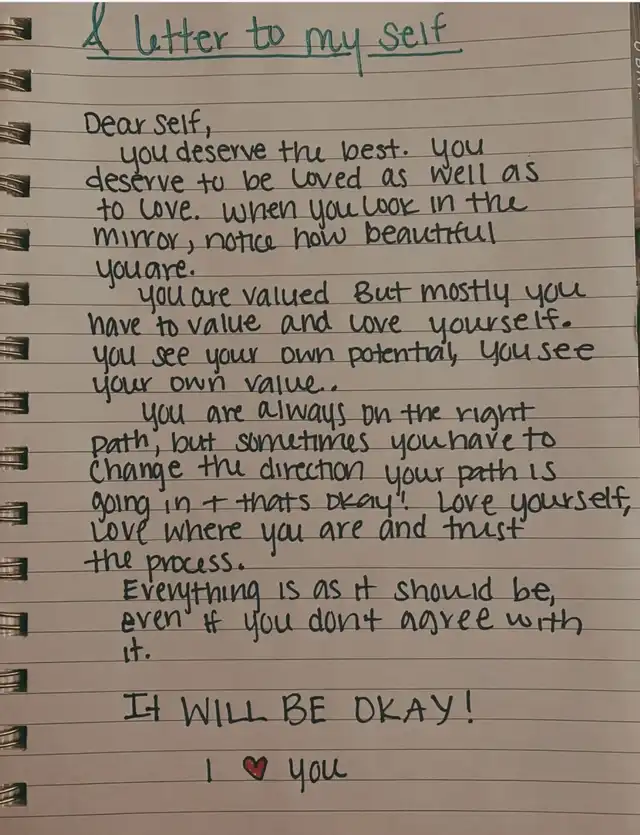 A letter to my self
Dear self,
you deserve the best. you
deserve to be loved as well as
to love. when you look in the
mirror, notice how beautiful
you are.
you are valued But mostly you
have to value and love yourself.
you see your own potential, you see
your own value..
you are always on the right
path, but sometimes you have to
change the direction your path is
going in + thats okay! Love yourself,
Love where you are and trust
the process.
Everything is as it should be,
even if you dont agree with
it.
It WILL BE OKAY!
I ❤ you